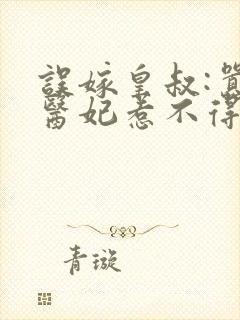 誤嫁皇叔:
醫妃惹不得
青璇